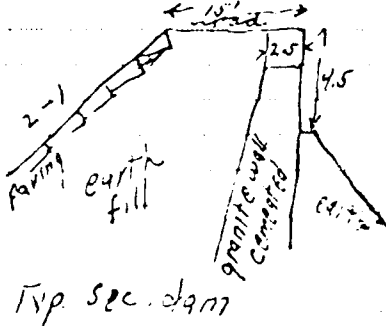 15'
road
2.5
4.5
2-1
paving
earth
fill
granite wall
cemented
earth
Typ. sec. dam